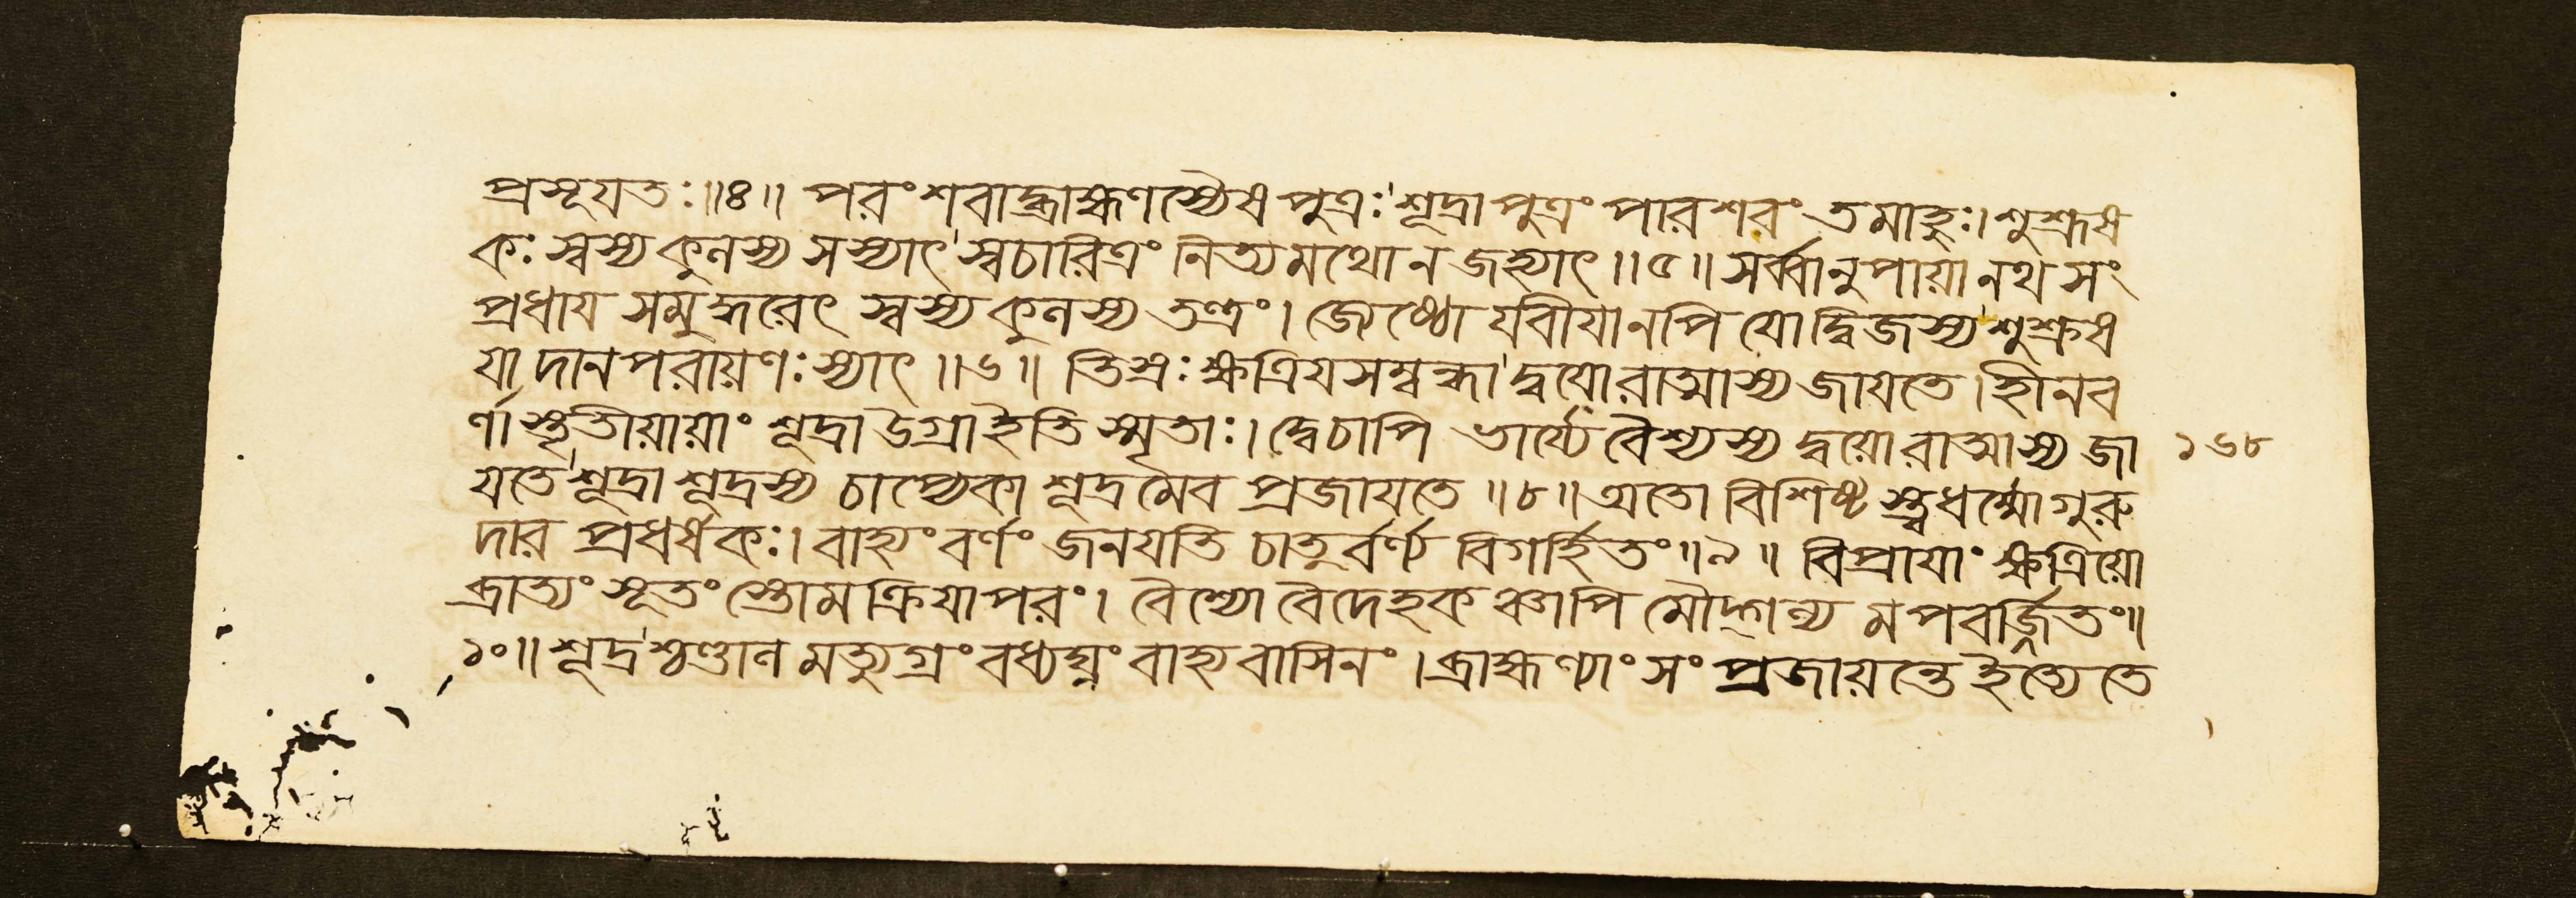 প্রসূযতঃ॥৪॥ পরং শবাদ্ব্রাহ্মণস্যৈষ পুত্রঃ শূদ্রাপুত্রং পারশবং তমাহুঃ। শুশ্রূষ
কঃ স্বস্য কুলস্য স স্যাৎ স্বচারিত্রং নিত্যমথো ন জহ্যাৎ॥৫॥ সর্ব্বানুপায়ানথ সং
প্রধায সমুদ্ধরেৎ স্বস্য কুলস্য তন্ত্রং। জেষ্ঠো যবীযানপি যো দ্বিজস্য শুশ্রুষ
যা দানপরায়ণঃ স্যাৎ॥৬॥ তিস্রঃ ক্ষত্রিযসম্বন্ধা দ্বযোরাত্মাস্য জাযতে। হীনব
র্ণাস্তৃতীয়ায়াং শূদ্রা উগ্রা ইতি স্মৃতাঃ। দ্বে চাপি ভার্য্যে বৈশ্যস্য দ্বয়োরাত্মাস্য জা ১৬৮
যতে শূদ্রা শূদ্রস্য চাপ্যেকা শূদ্রমেব প্রজাযতে॥৮॥ অতো বিশিষ্টস্ত্বধর্ম্মো গুরু
দার প্রধর্ষকঃ। বাহ্যং বর্ণং জনযতি চাতুর্বর্ণ্য বিগর্হিতং॥৯॥ বিপ্রাযাং ক্ষত্রিয়ো
ব্রাত্যং সূতং স্তোমক্রিযাপরং। বৈশ্যো বৈদেহকঞ্চাপি মৌদ্গল্য মপবর্জ্জিতং॥
১০॥ শূদ্রশ্চণ্ডালমত্যুগ্রং বধ্যঘ্নং বাহ্যবাসিনং। ব্রাহ্মণ্যাং সংপ্রজায়ন্তে ইত্যেতে